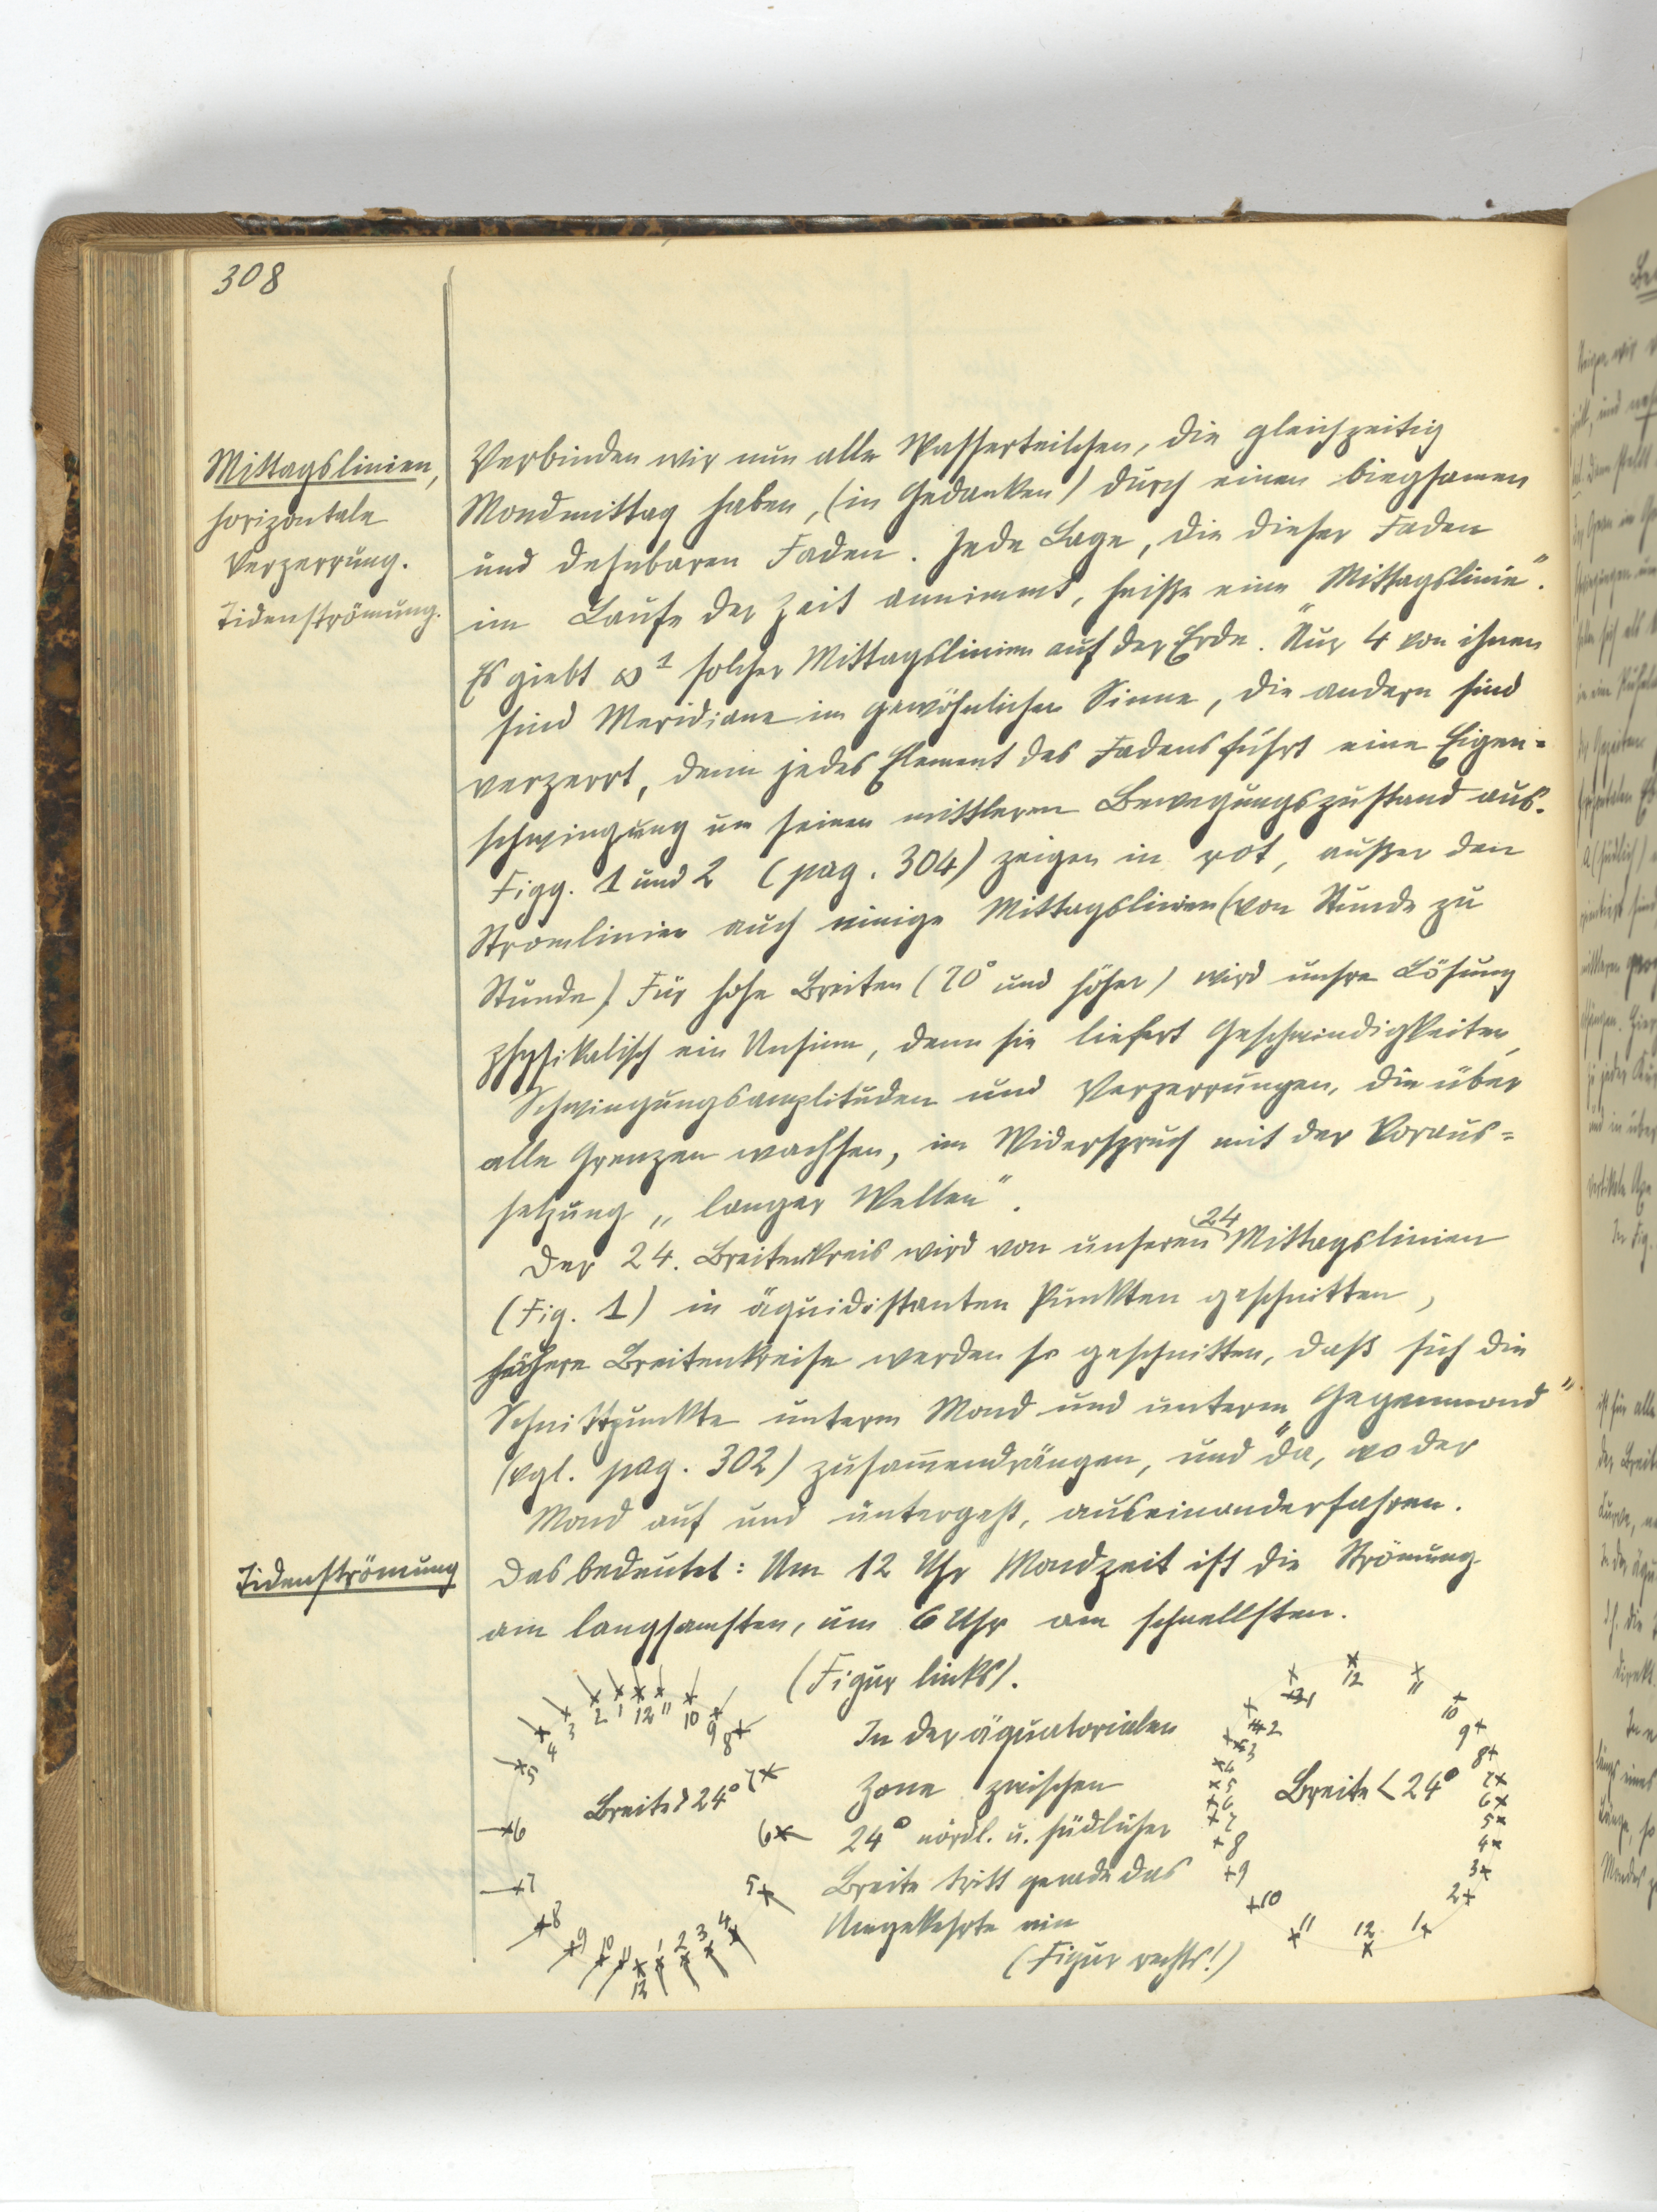 308
Mittagslinien,
horizontale
Verzerrung.
Tidenströmung.
Verbinden wir nun alle Wasserteilchen, die gleichzeitig
Mondmittag haben, (in Gedanken) durch einen biegsamen
und dehnbaren Faden. Jede Lage, die dieser Faden
im Laufe der Zeit annimmt, heiße eine „Mittagslinie“.
Es giebt ∞¹ solcher Mittagslinien auf der Erde. Nur 4 von ihnen
sind Meridiane im gewöhnlichen Sinne, die andern sind
verzerrt, denn jedes Element des Fadens führt eine Eigen=
schwingung um seinen mittleren Bewegungszustand aus.
Figg. 1 und 2 (pag. 304) zeigen in rot, außer den
Stromlinien auch einige Mittagslinien (von Stunde zu
Stunde). Für hohe Breiten (70° und höher) wird unsre Lösung
physikalisch ein Unsinn, denn sie liefert Geschwindigkeiten,
Schwingungsamplituden und Verzerrungen, die über
alle Grenzen wachsen, im Widerspruch mit der Voraus=
setzung „langer Wellen“.
Der 24. Breitenkreis wird von unseren 24 Mittagslinien
(Fig. 1) in äquidistanten Punkten geschnitten,
höhere Breitenkreise werden so geschnitten, daß sich die
Schnittpunkte unterm Mond und unterm „Gegenmond“
(vgl. pag. 302) zusammendrängen, und da, wo der
Mond auf und untergeht, auseinanderfahren.
Tidenströmung
Das bedeutet: Um 12 Uhr Mondzeit ist die Strömung
am langsamsten, um 6 Uhr am schnellsten.
(Figur links).
In der äquatorialen
Zone zwischen
24° nördl. u. südlicher
Breite tritt gerade das
Umgekehrte ein
(Figur rechts!)
4 3 2 1 12 11 10 9 8
5
7
Breite > 24°
6
6
7
5
8 9 10 11 12 1 2 3 4
1 12 11
2
10
3
9
4
8
5
7
Breite < 24°
6
6
7
5
8
4
9
3
10
2
11 12 1